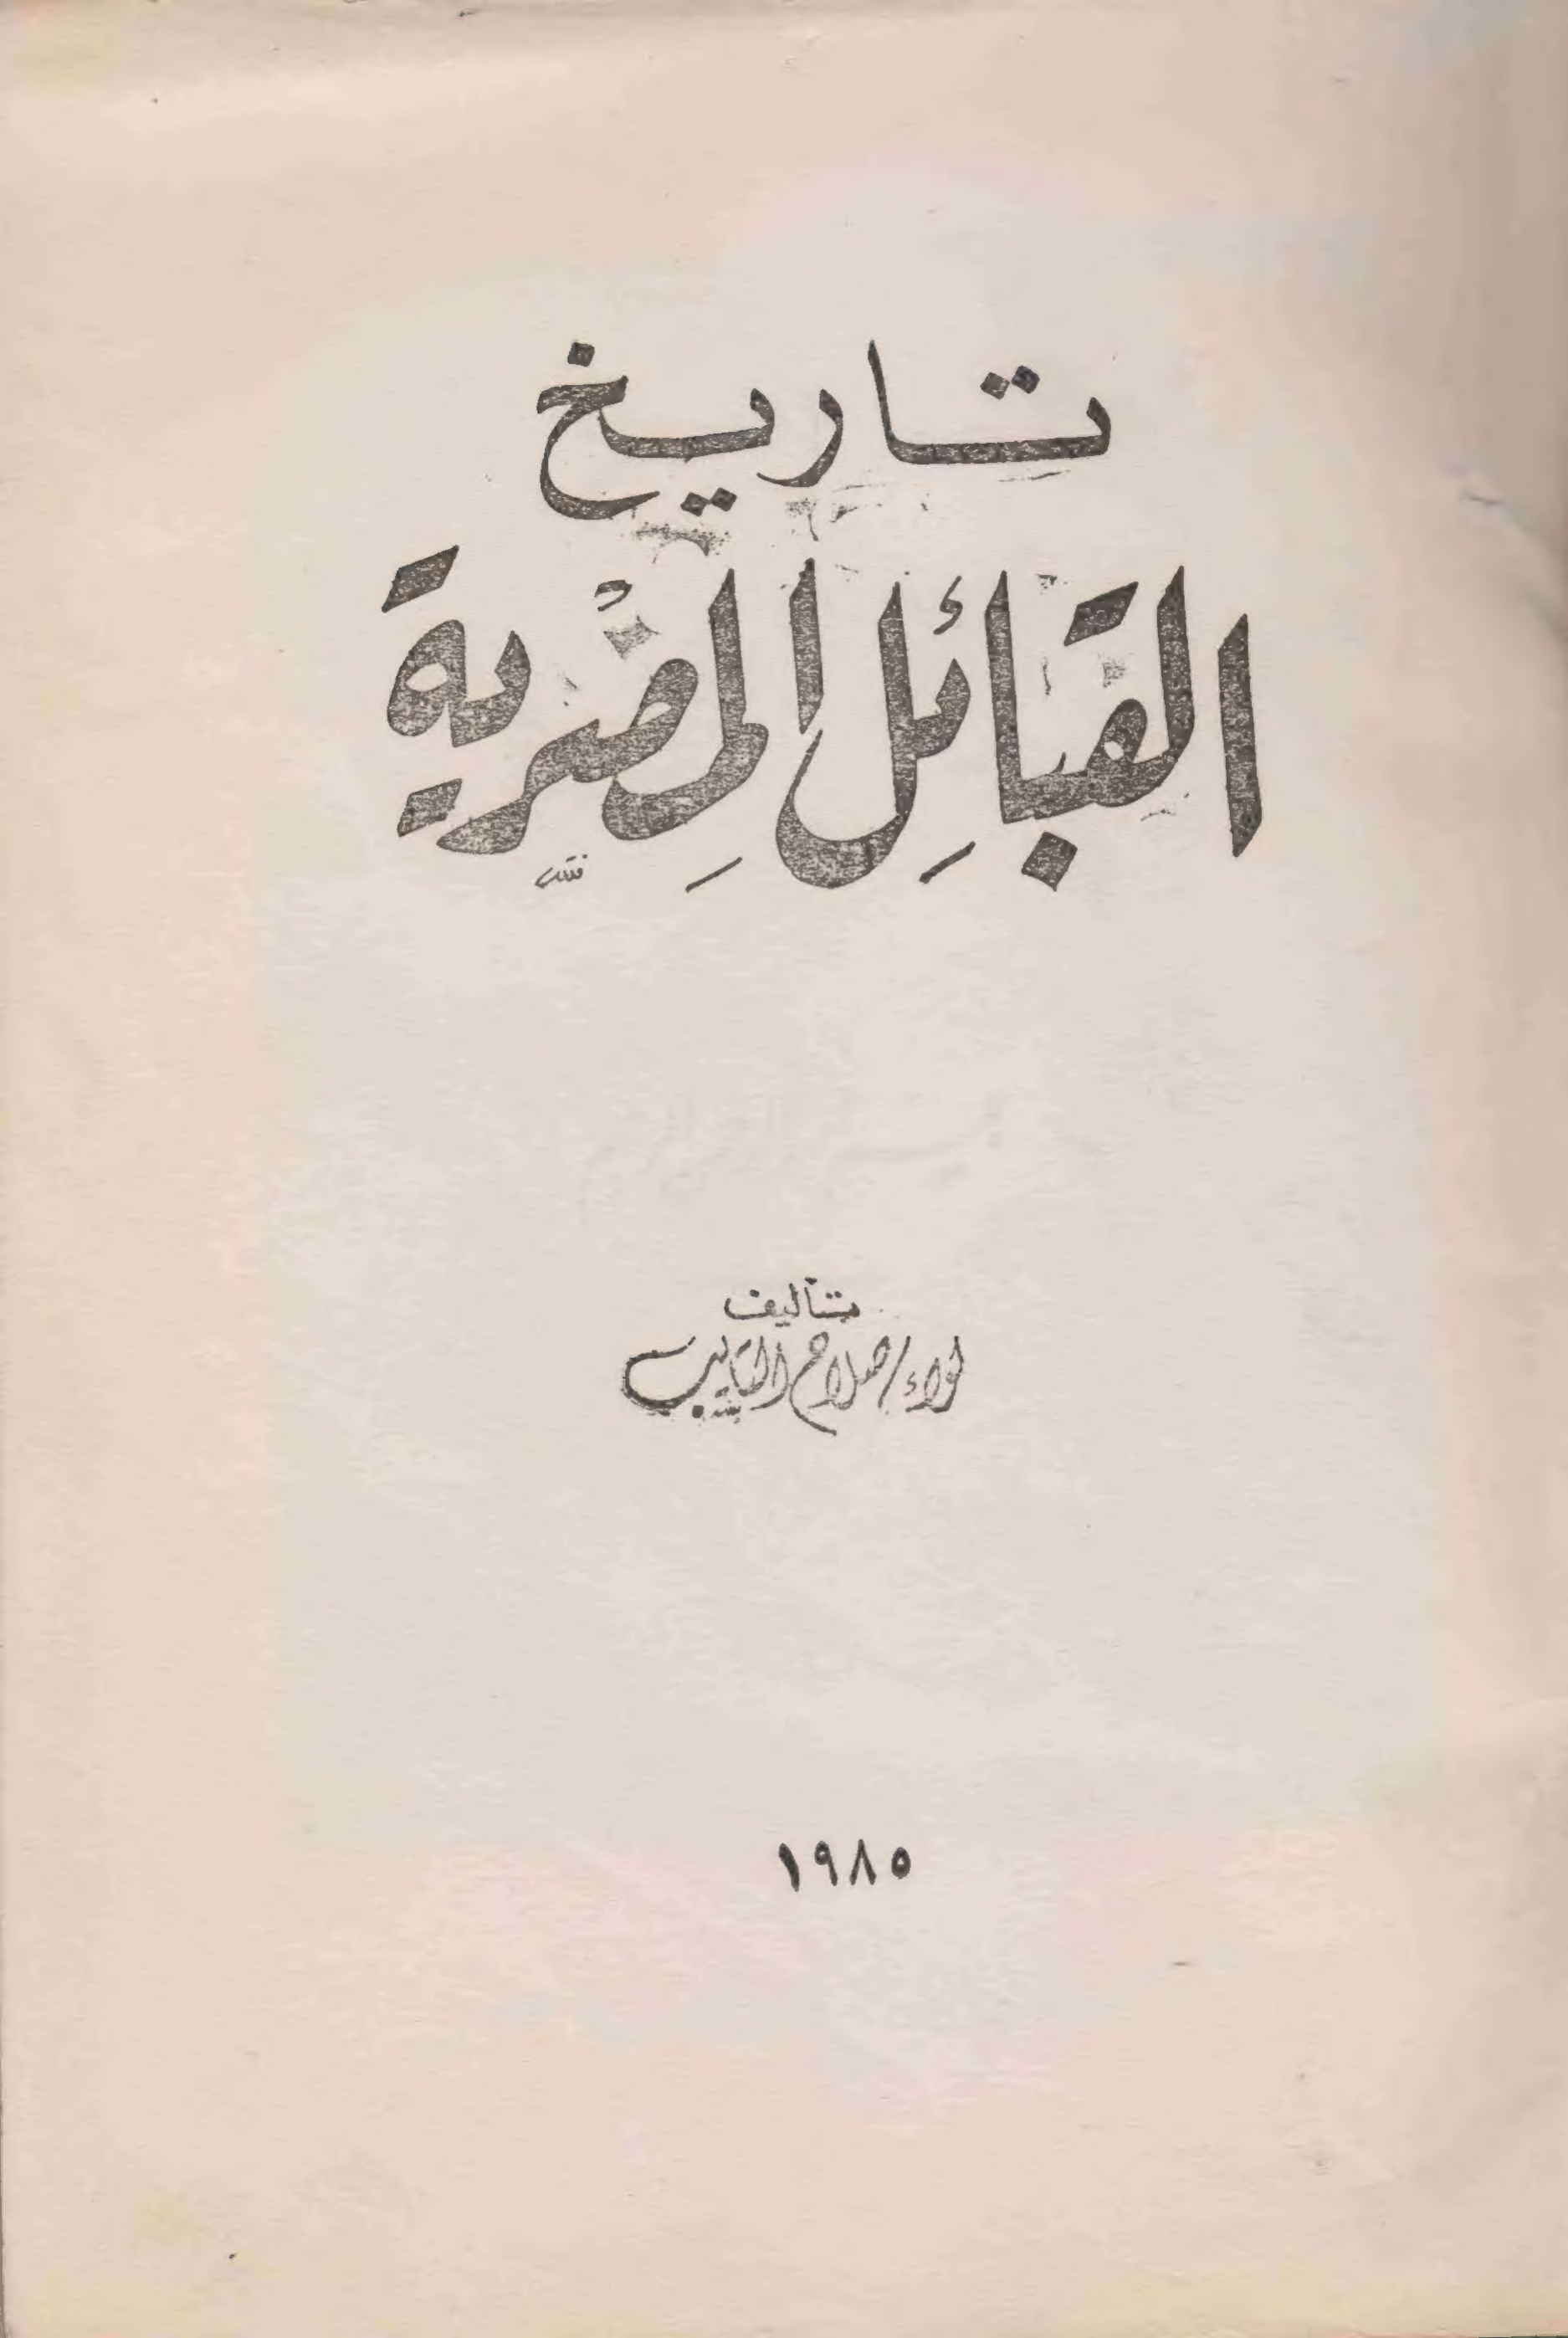 تاريخ
القبائل المصرية
تأليف
لواء/صلاح التايب
١٩٨٥